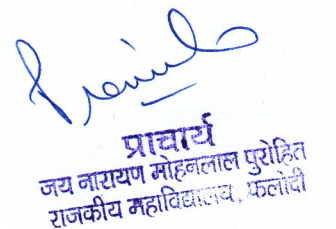 प्राचार्य
जय नारायण मोहनलाल पुरोहित
राजकीय महाविद्यालय, फलोदी